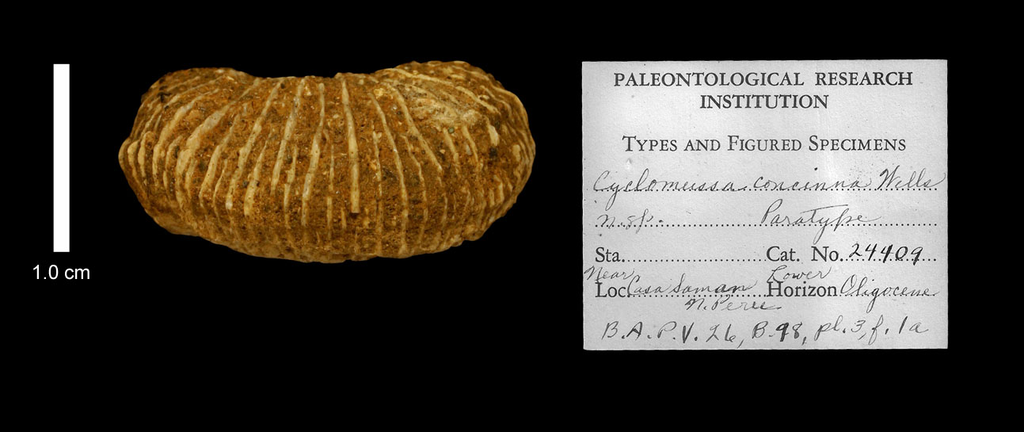 1.0 cm
PALEONTOLOGICAL RESEARCH
INSTITUTION
TYPES AND FIGURED SPECIMENS
Cyclomussa concinna Wells
n. sp. Paratype
Sta. Cat. No. 24409
Near Lower
Loc. Casa Saman Horizon Oligocene
N. Peru
B. A. P. V. 26, B. 98, pl. 3, f. 1a